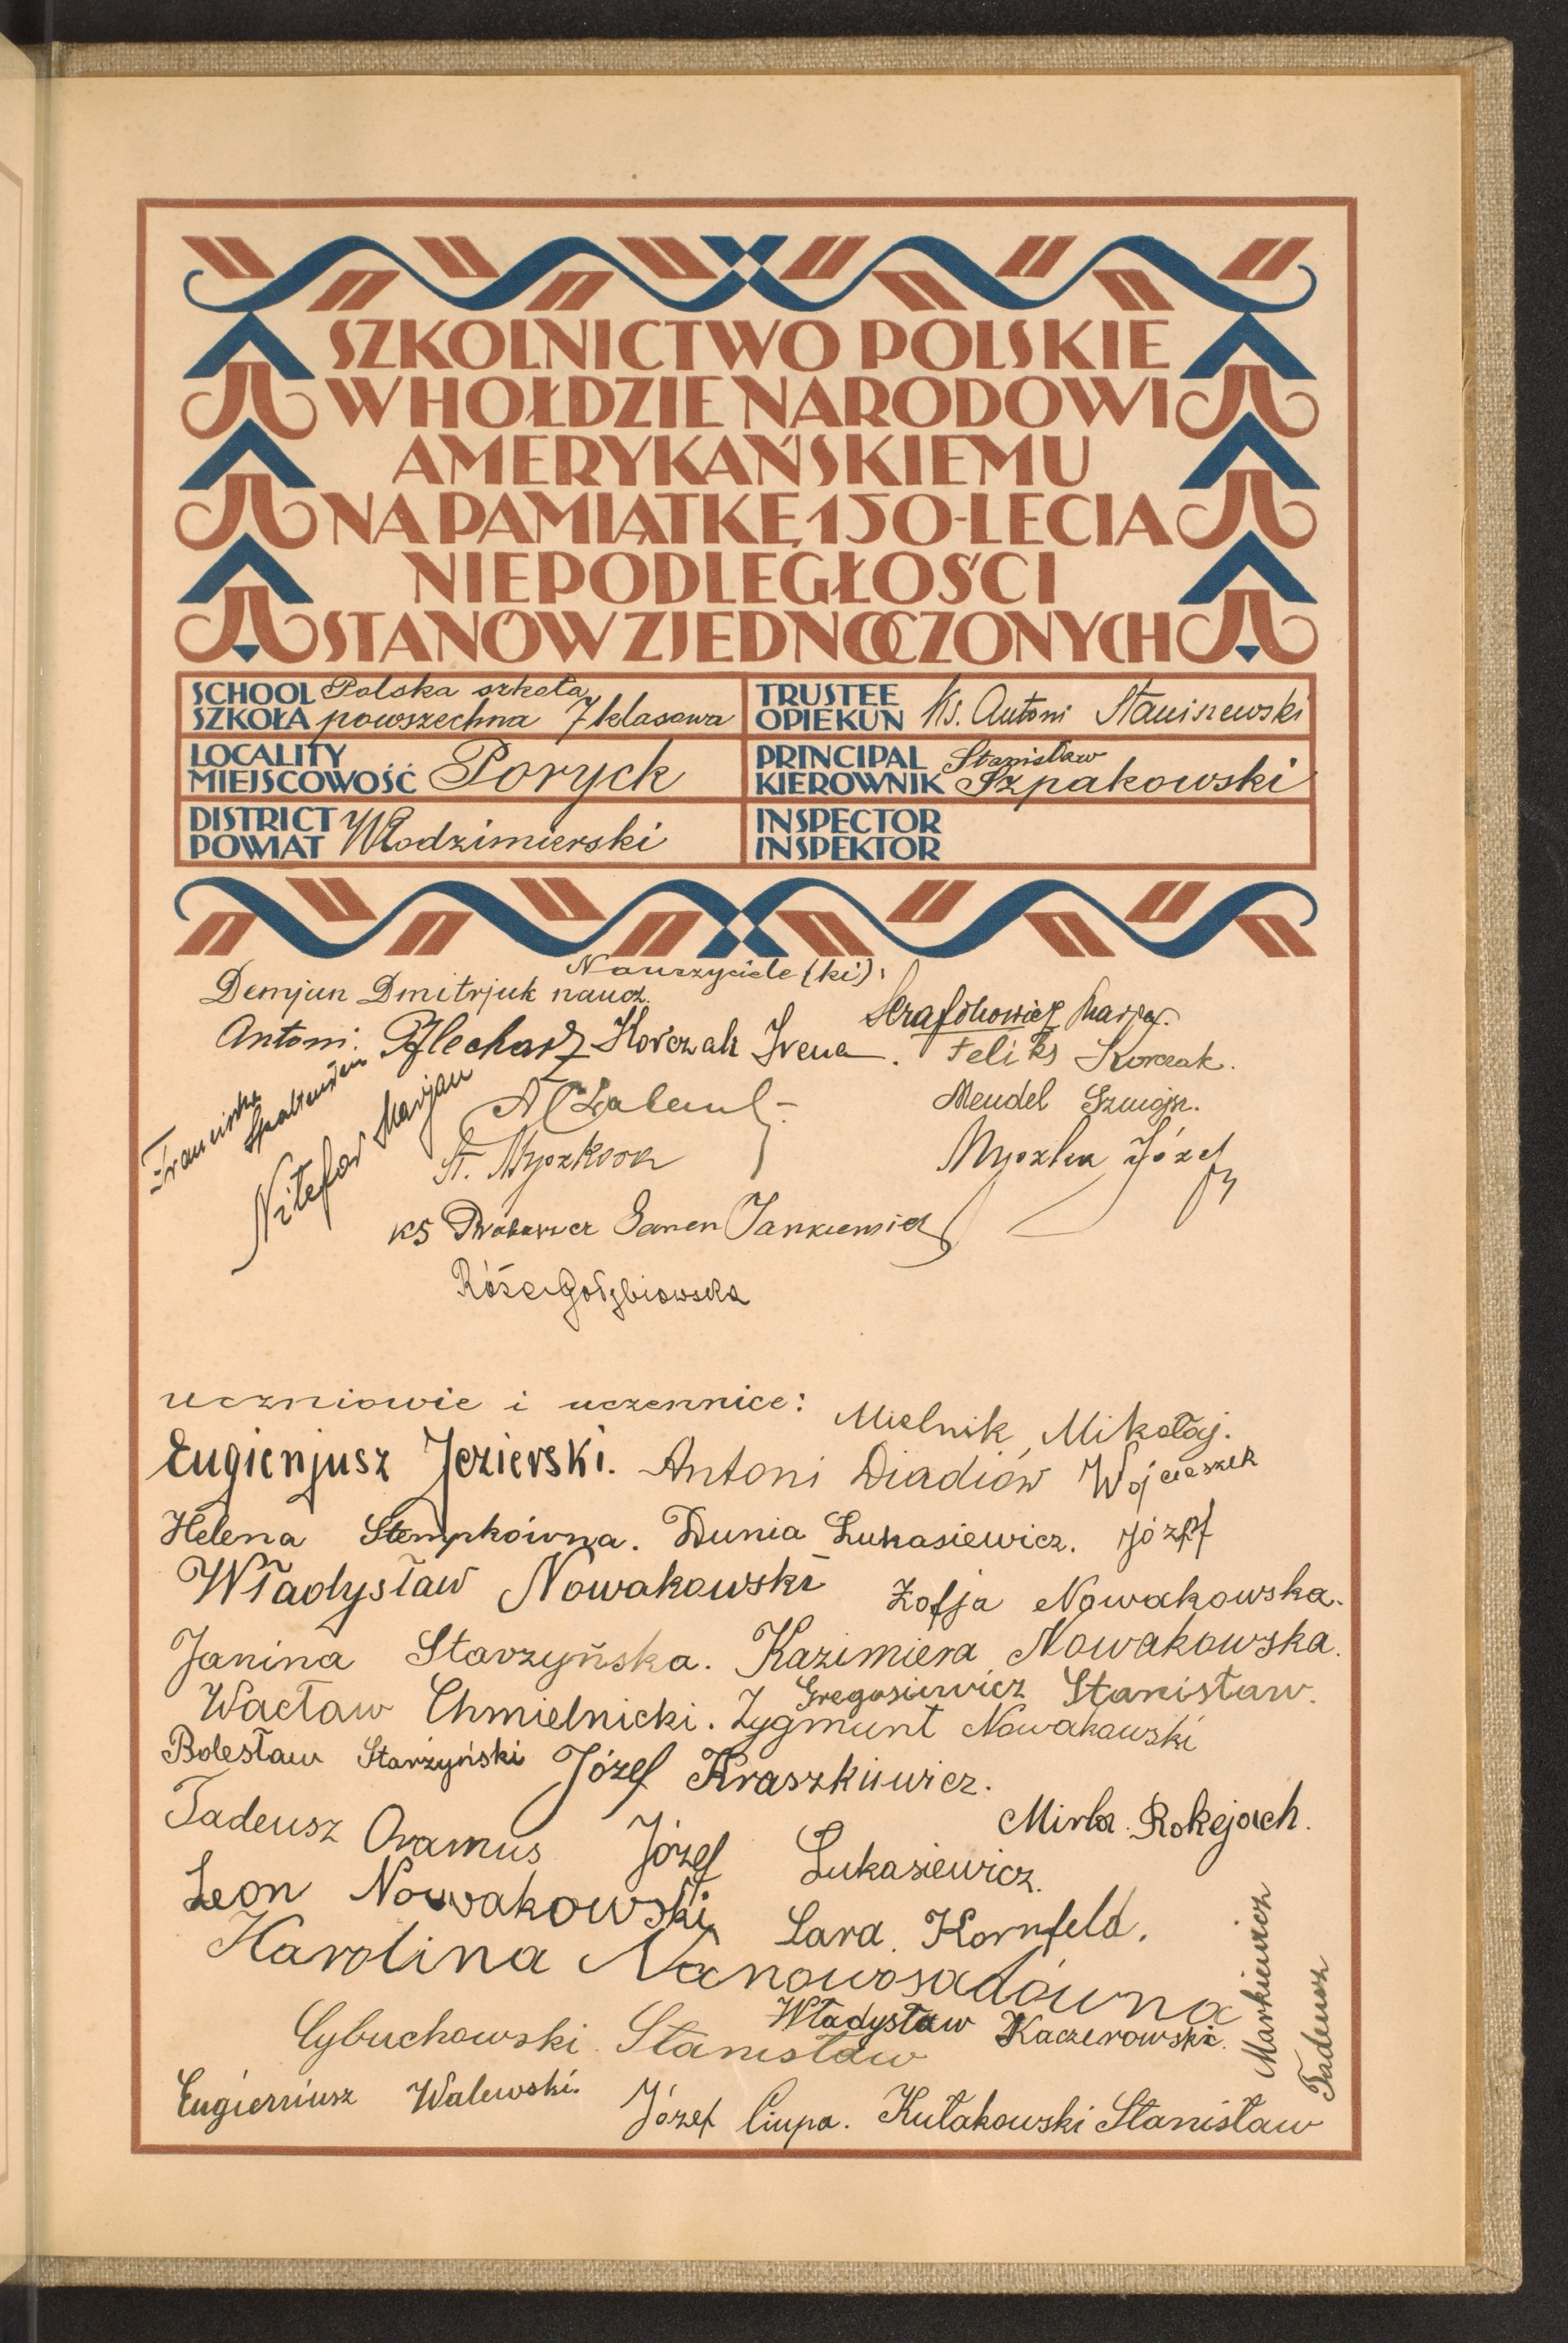 SZKOLNICTWO POLSKIE
W HOŁDZIE NARODOWI
AMERYKAŃSKIEMU
NA PAMIĄTKĘ 150-LECIA
NIEPODLEGŁOŚCI
STANÓW ZJEDNOCZONYCH
SCHOOL
SZKOŁA
Polska szkoła
powszechna 7 klasowa
TRUSTEE
OPIEKUN
Ks. Antoni Staniszewski
LOCALITY
MIEJSCOWOŚĆ
Poryck
PRINCIPAL
KIEROWNIK
Stanisław
Szpakowski
DISTRICT
POWIAT
Włodzimierski
INSPECTOR
INSPEKTOR
Nauczyciele (ki):
Demjan Dmitrjuk naucz.
Serafinowicz Marja.
Antoni Korczak Irena.
Feliks Korczak.
Franciszka
Nitefor Marjan
Mendel
St. Myszkora
Myszka Józef
Ks Jankiewicz
Róża Gołębiowska
uczniowie i uczennice:
Mielnik Mikołaj.
Eugienjusz Jezierski. Antoni Diadiów Wojcieszek
Helena Stempkówna. Dunia Łukasiewicz. Józef
Władysław Nowakowski Zofja Nowakowska.
Janina Starzyńska. Kazimiera Nowakowska.
Gregosiewicz Stanisław.
Wacław Chmielnicki. Zygmunt Nowakowski
Bolesław Starzyński Józef Kraszkiewicz.
Mirla Rokejach.
Tadeusz Oramus Józef Łukasiewicz.
Leon Nowakowski Sara Kornfeld.
Karolina Nanowosadówna
Władysław Kaczerowski.
Cybuchowski Stanisław
Markiewicz
Tadeusz
Eugieniusz Walewski. Józef Ciupa. Kułakowski Stanisław